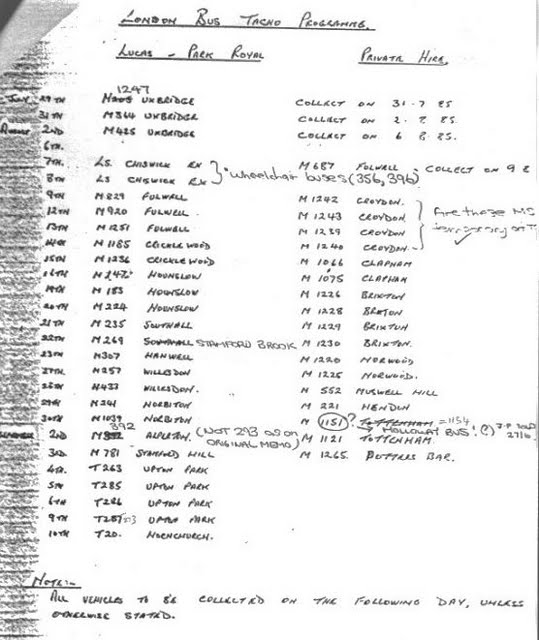 LONDON BUS TACHO PROGRAMME.
LUCAS - PARK ROYAL PRIVATE HIRE.
1247
JULY 29TH UXBRIDGE COLLECT ON 31-7 85
31TH M364 UXBRIDGE COLLECT ON 2. 8 85.
August 2ND M425 UXBRIDGE COLLECT ON 6 8. 85.
6TH.
7TH. LS CHISWICK RX M687 FULWELL COLLECT ON 9 8
8TH LS CHISWICK RX "Wheelchair buses (356, 396)
9TH M829 FULWELL M1242 CROYDON.
12TH M920 FULWELL. M1243 CROYDON Are these MS
13TH M1251 FULWELL M1239 CROYDON
14TH M1185 CRICKLEWOOD M1240 CROYDON. ✓
15TH M1236 CRICKLEWOOD M1066 CLAPHAM
16TH HOUNSLOW M1075 CLAPHAM
19TH M183 HOUNSLOW M1226 BRIXTON
20TH M224 HOUNSLOW M1228 BRIXTON
21TH M235 SOUTHALL M1229 BRIXTON
22TH M269 SOUTHALL STAMFORD BROOK M1230 BRIXTON.
23TH M307 HANWELL M1220 NORWOOD
27TH. M257 WILLESDEN M1225 NORWOOD.
28TH M433 WILLESDEN. M 552 MUSWELL HILL
29TH M241 NORBITON M 221 HENDON
30TH M1039 NORBITON M 1151? TOTTENHAM = 1154
392 → HOLLOWAY BUS! (?)
2ND ALPERTON. (NOT 293 as on ORIGINAL MEMO) M1121 TOTTENHAM. 27/10
3RD M781 STAMFORD HILL M1265 POTTERS BAR.
4TH. T263 UPTON PARK
5TH T285 UPTON PARK
6TH T286 UPTON PARK
9TH UPTON PARK
10TH T20. HORNCHURCH.
NOTE:-
ALL VEHICLES TO BE COLLECTED ON THE FOLLOWING DAY, UNLESS
OTHERWISE STATED.